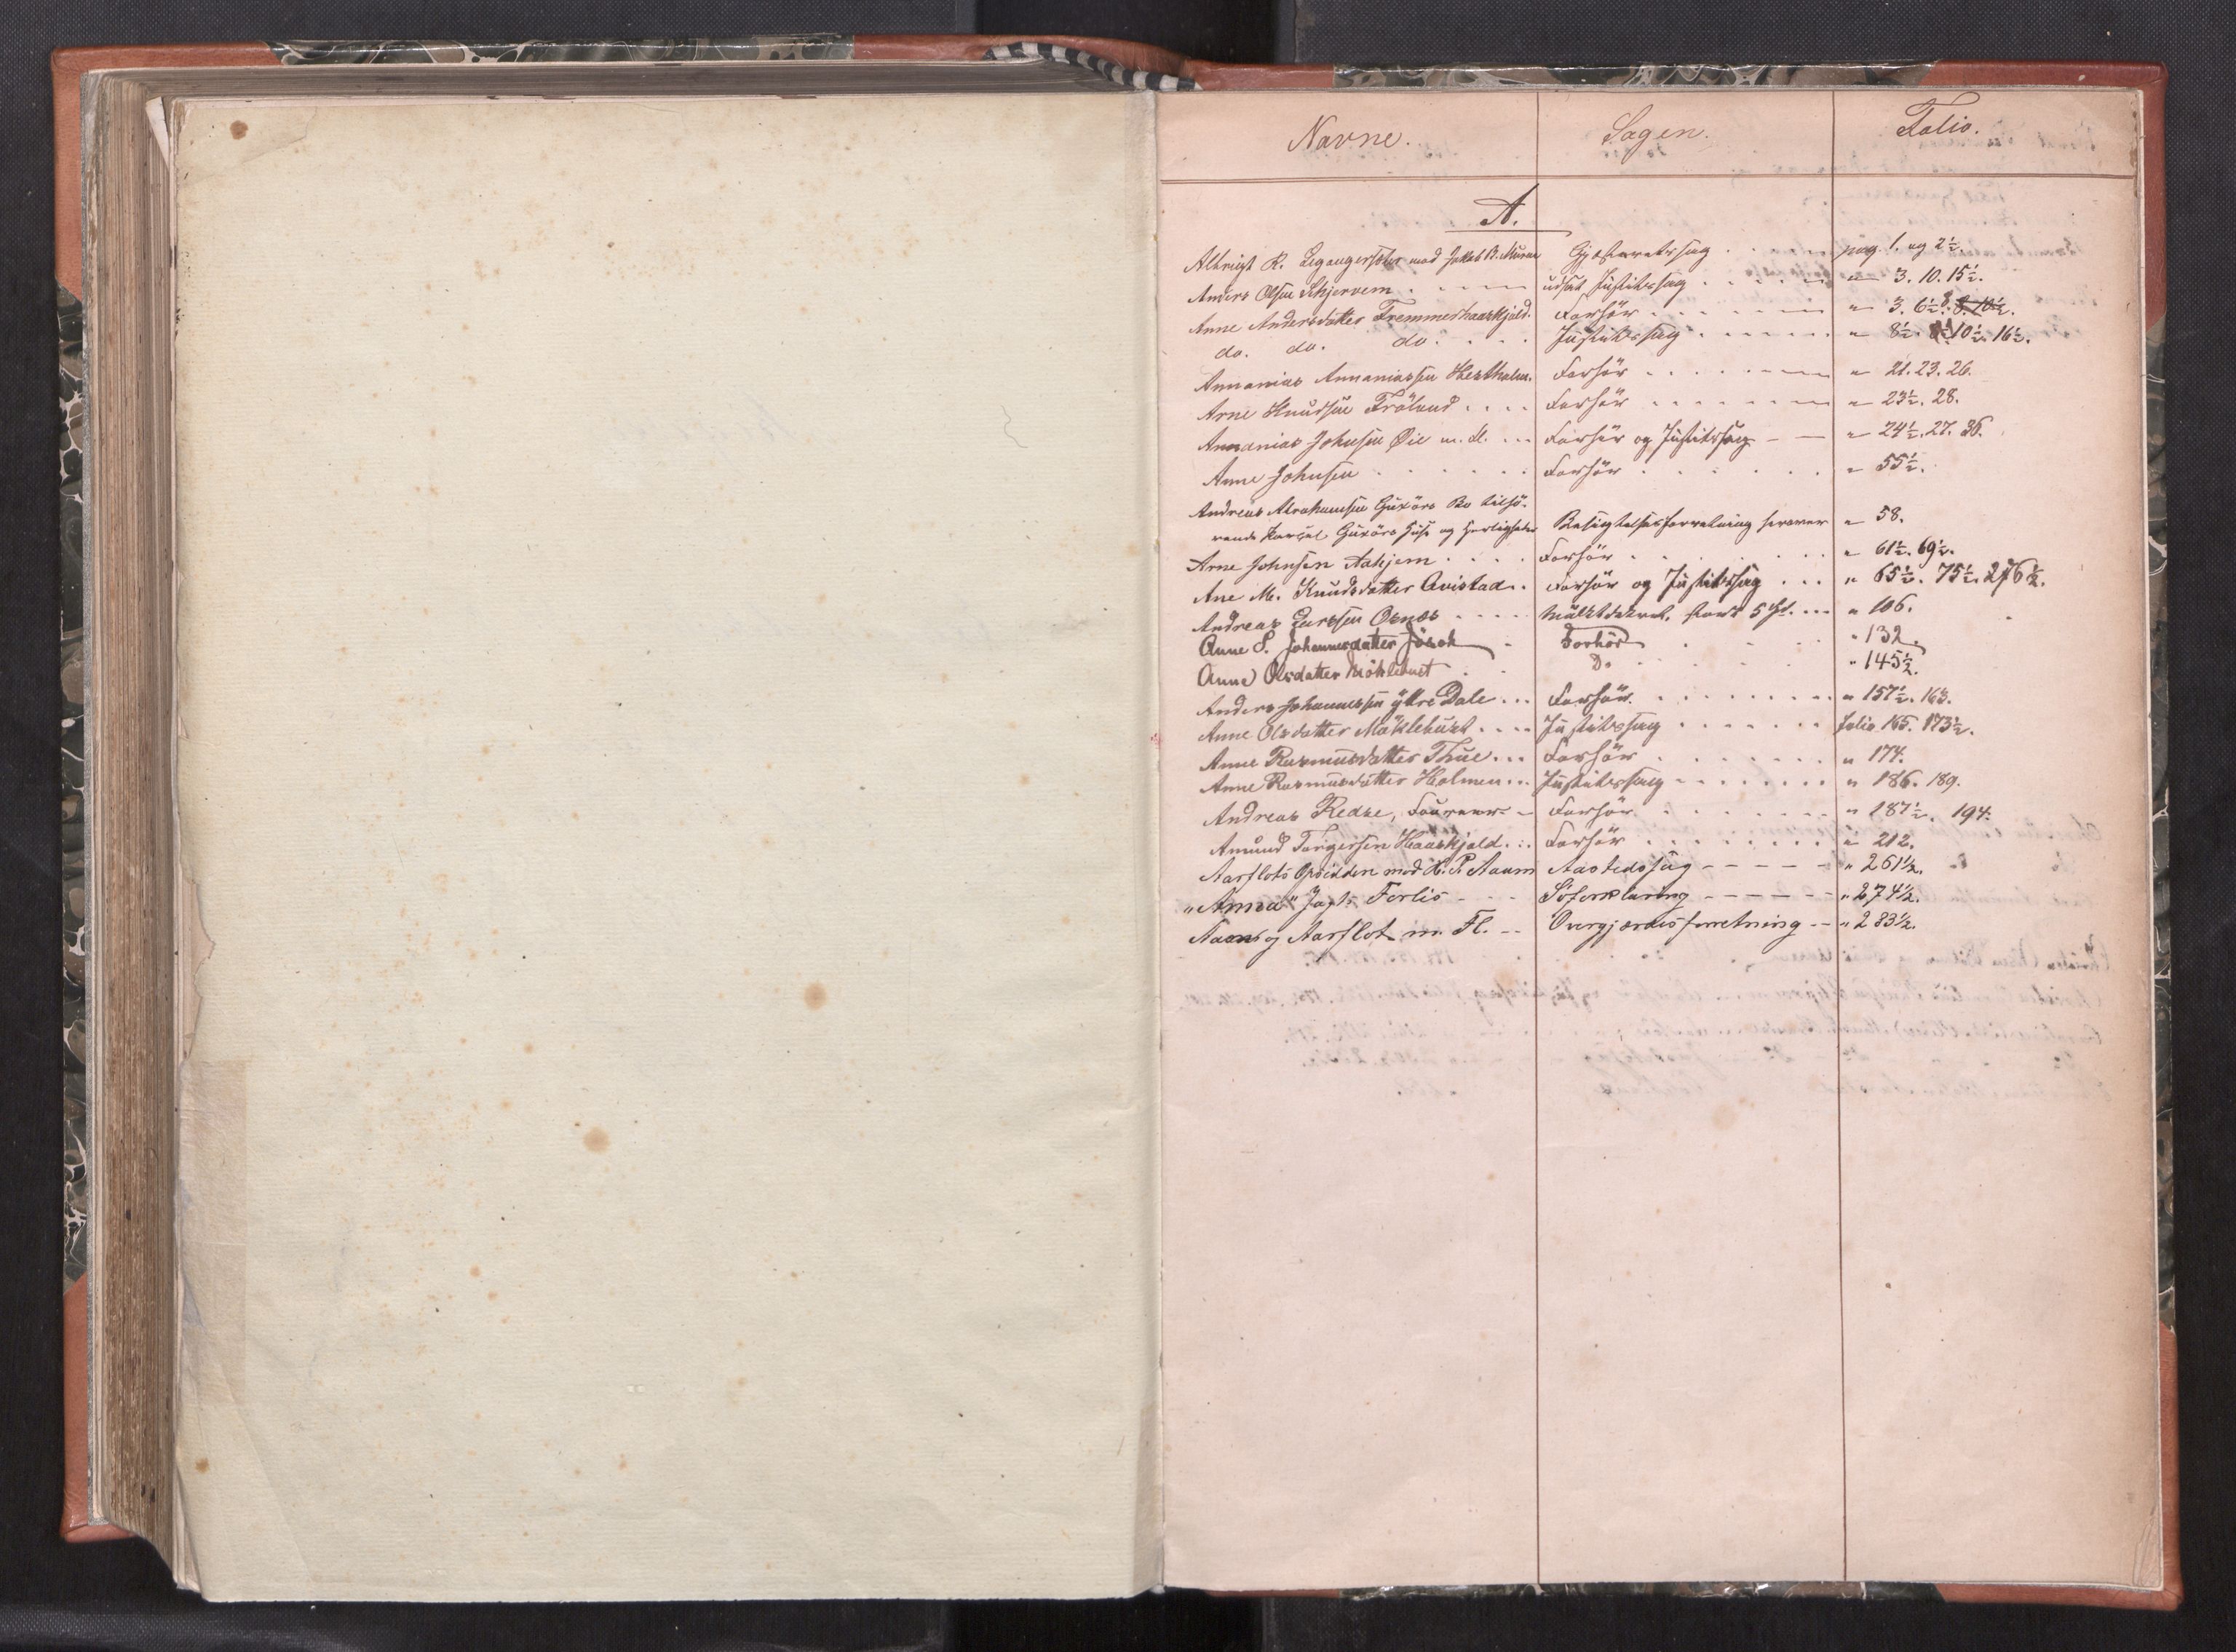 Navne. Sagen. Folio.
A.
Albrigt R. mod Jakob R. Gjæsteretssag pag. 1. og 2½.
Anders Olsen Skjervem udsat Justitssag " 3. 10. 15½.
Anne Andersdatter Fremmerhaaskjold. Forhör " 3. 6½.
do. do. do. Justitssag " 8½. 10½. 16½.
Annanias Annaniassen Hestholm. Forhör " 21. 23. 26.
Arne Knudsen Fröland Forhör " 23½. 28.
Annanias Johnsen Öie m. fl. Forhör og Justitssag " 24½. 27. 36.
Anne Johnsen Forhör " 55½.
Andreas Abrahamsen Guxörs Bo tilhö-
rende Guxörs Huse og Herligheder Besigtelsesforretning herover " 58.
Arne Johnsen Aahjem Forhör " 61½. 69½.
Ane M. Knudsdatter Avistad Forhör og Justitssag " 65½. 75½. 276½.
Andreas Larssen Osnes Mulktdekret, stort 5 Spd. " 106.
Anne S. Johannesdatter Jösok Forhör " 132.
Anne Olsdatter Möklebust Do " 145½.
Anders Johannessen ytre Dale Forhör " 157½. 163.
Anne Olsdatter Möklebust Justitssag folio 165. 173½.
Anne Rasmusdatter Thue Forhör " 174.
Anne Rasmusdatter Holmen Justitssag " 186. 189.
Andreas Redse, Forhör " 187½. 194.
Amund Torgersen Haaskjold Forhör " 212.
Aarflots Opsidden mod H. P. Aaum Aastedssag " 261½.
"Anna" Jagts Forlis Söforklaring " 274½.
og Aarflot m. Fl. Overgjærdesforretning " 283½.